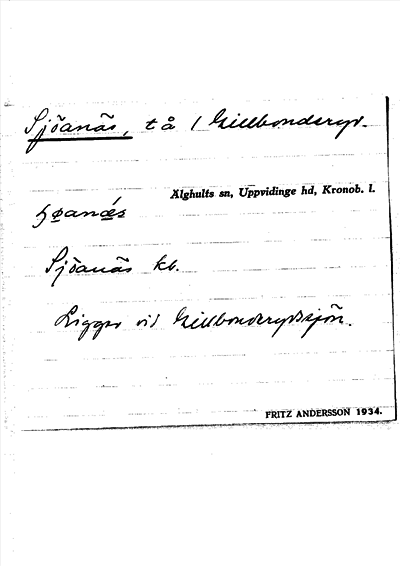 Sjöanäs, tå / Gillbonderyd.
Älghults sn, Uppvidinge hd, Kronob. l.
Sjöanäs kb.
Ligger vid Gillbonderydssjön.
FRITZ ANDERSSON 1934.